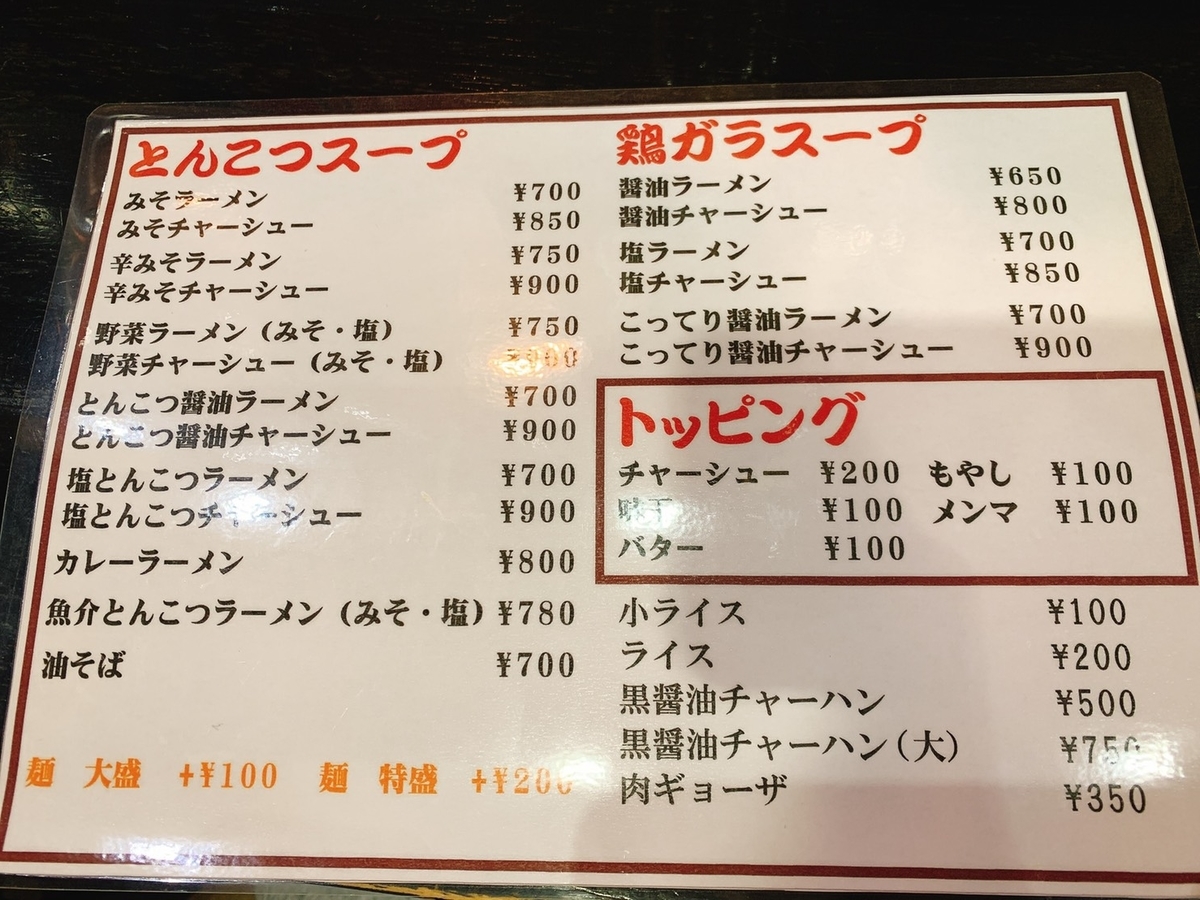 とんこつスープ
みそラーメン ¥700
みそチャーシュー ¥850
辛みそラーメン ¥750
辛みそチャーシュー ¥900
野菜ラーメン（みそ・塩） ¥750
野菜チャーシュー（みそ・塩） ¥900
とんこつ醤油ラーメン ¥700
とんこつ醤油チャーシュー ¥900
塩とんこつラーメン ¥700
塩とんこつチャーシュー ¥900
カレーラーメン ¥800
魚介とんこつラーメン（みそ・塩） ¥780
油そば ¥700
麺 大盛 +¥100 麺 特盛 +¥200
鶏ガラスープ
醤油ラーメン ¥650
醤油チャーシュー ¥800
塩ラーメン ¥700
塩チャーシュー ¥850
こってり醤油ラーメン ¥700
こってり醤油チャーシュー ¥900
トッピング
チャーシュー ¥200 もやし ¥100
¥100 メンマ ¥100
バター ¥100
小ライス ¥100
ライス ¥200
黒醤油チャーハン ¥500
黒醤油チャーハン（大） ¥750
肉ギョーザ ¥350